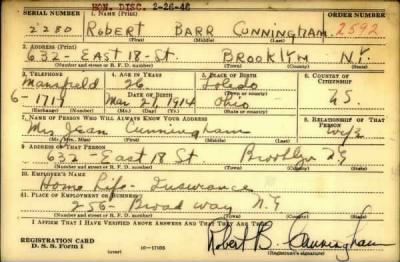 HON. DISC. 2-26-46
SERIAL NUMBER 1. NAME (Print) ORDER NUMBER
2280 ROBERT BARR CUNNINGHAM 2592
(First) (Middle) (Last)
2. ADDRESS (Print)
632 EAST 18-St. BROOKLYN N.Y.
(Number and street or R. F. D. number) (Town) (County) (State)
3. TELEPHONE 4. AGE IN YEARS 5. PLACE OF BIRTH 6. COUNTRY OF CITIZENSHIP
Mansfield 26 Toledo
DATE OF BIRTH (Town or county)
6-1717 Mar 27, 1914 Ohio U.S.
(Exchange) (Number) (Mo.) (Day) (Yr.) (State or country)
7. NAME OF PERSON WHO WILL ALWAYS KNOW YOUR ADDRESS 8. RELATIONSHIP OF THAT PERSON
Mrs. Jean Cunningham Wife
(Mr., Mrs., Miss) (First) (Middle) (Last)
9. ADDRESS OF THAT PERSON
632 - East 18 St Brooklyn N.Y
(Number and street or R. F. D. number) (Town) (County) (State)
10. EMPLOYER'S NAME
Home Life - Insurance
11. PLACE OF EMPLOYMENT OR BUSINESS
256 - Broadway N.Y
(Number and street or R. F. D. number) (Town) (County) (State)
I AFFIRM THAT I HAVE VERIFIED ABOVE ANSWERS AND THAT THEY ARE TRUE.
REGISTRATION CARD
D. S. S. Form 1 (over) 16-17105
Robert B. Cunningham
(Registrant's signature)